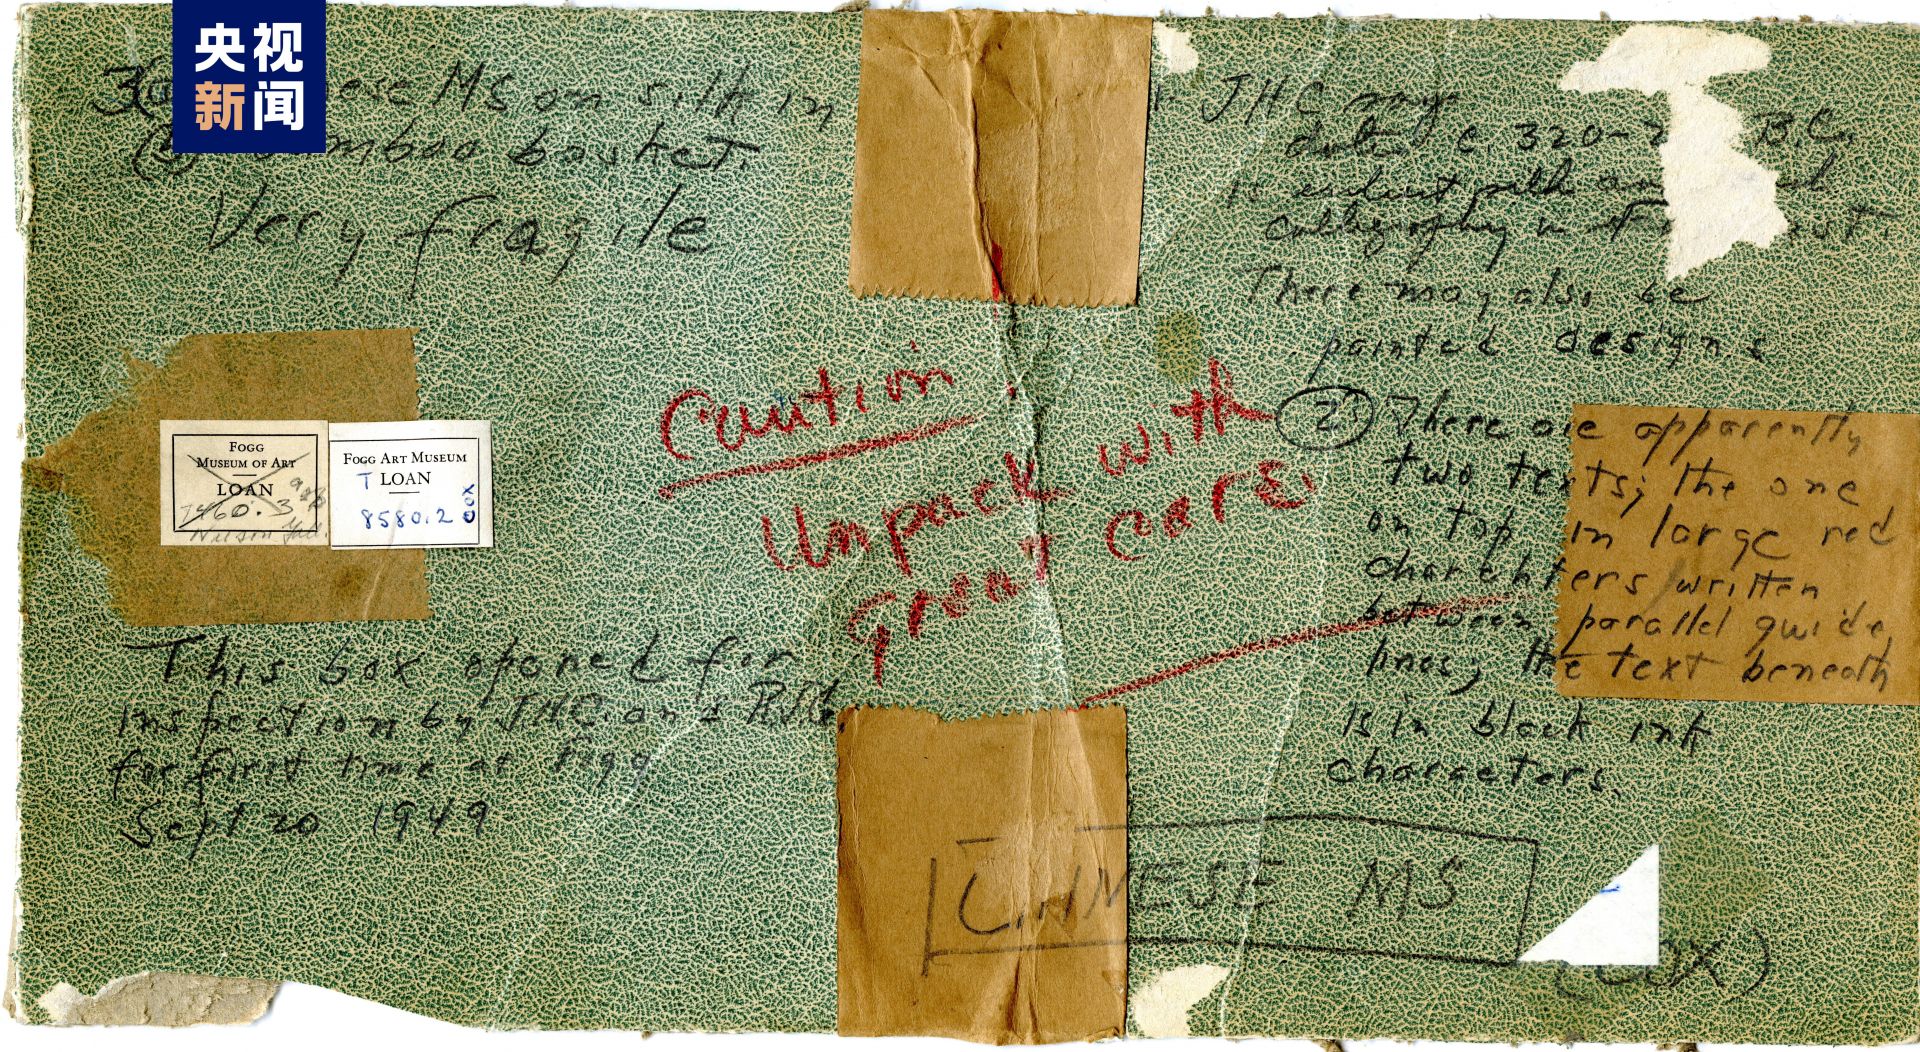 央视
新闻
MS on silk in
basket.
Very fragile
FOGG
MUSEUM OF ART
LOAN
FOGG ART MUSEUM
T LOAN
8580.2 COX
This box opened for
inspection by J.H.C. and
for first time at Fogg
Sept 20 1949
Caution
Unpack with
great care.
JHC says
date c. 320-
B.C.
is ancient silk
calligraphy in
There may also be
painted designs
2) There are apparently
two texts; the one
on top, in large red
charachters written
between parallel guide
lines; the text beneath
is in black ink
characters.
CHINESE MS
(COX)